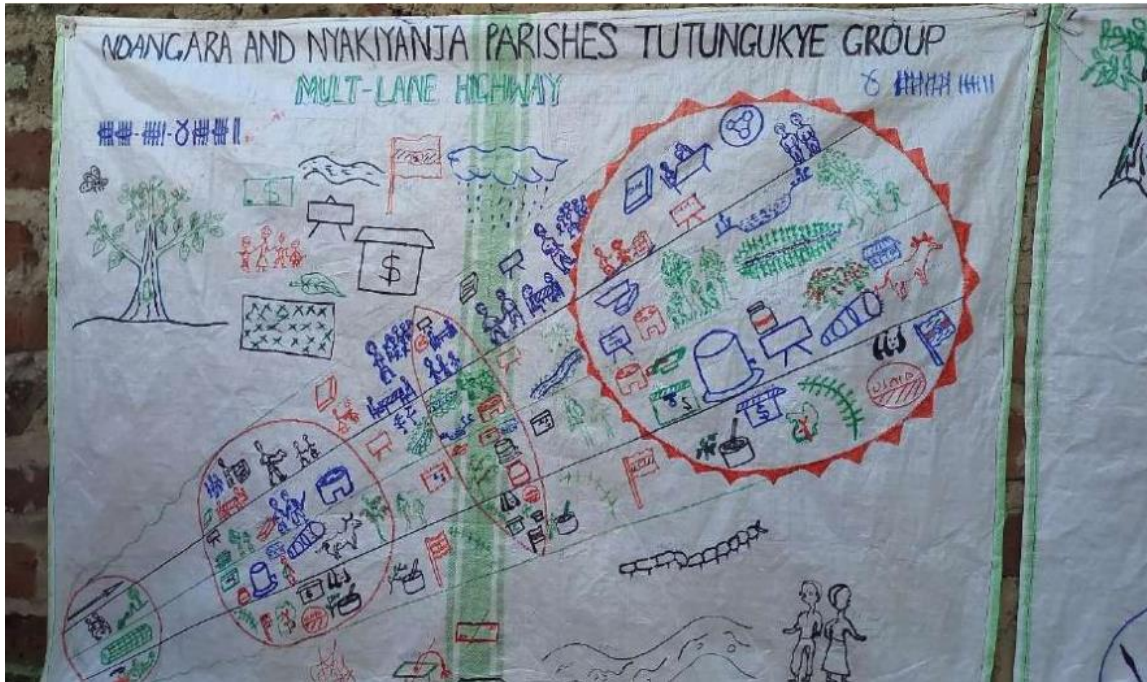 NDANGARA AND NYAKIYANJA PARISHES TUTUNGUKYE GROUP
MULT-LANE HIGHWAY
$
$
$